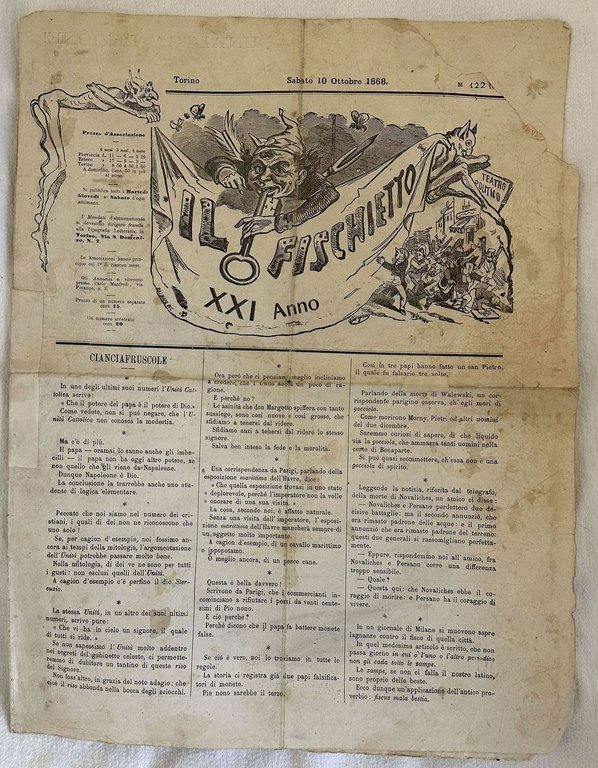 Torino
Sabato 10 Ottobre 1868.
N. 122
Prezzo d'Associazione
Provincia L.
Estero
Torino
A domicilio, Cent. 50 in più
al mese.
Si pubblica tutti i Martedì
Giovedì e Sabato d'ogni
settimana.
I Mandati d'abbuonamento
si dovranno dirigere franchi
alla Tipografia Letteraria, in
Torino, Via S. Domeni-
co, N. 2.
Le Associazioni hanno prin-
cipio col 1° di ciascun mese.
Gli Annunzi si ricevono
presso Carlo Manfredi, via
Finanze, n. 1.
Prezzo di un numero separato
cent. 15.
Un numero arretrato
cent. 20.
IL FISCHIETTO
XXI Anno
TEATRO
POLITICO
CIANCIAFRUSCOLE
In uno degli ultimi suoi numeri l'Unità Cat-
tolica scriva:
« Che il potere del papa è il potere di Dio.»
Come vedete, non si può negare, che l'U-
nità Cattolica non conosca la modestia.
*
Ma c'è di più.
Il papa — oramai lo sanno anche gli imbe-
cilli — il papa non ha oggi altro potere, se
non quello che gli viene da Napoleone.
Dunque Napoleone è Dio.
La conclusione la trarrebbe anche uno stu-
dente di logica elementare.
*
Peccato che noi siamo nel numero dei cri-
stiani, i quali di dei non ne riconoscono che
uno solo!
Se, per cagion d'esempio, noi fossimo an-
cora ai tempi della mitologia, l'argomentazione
dell'Unità potrebbe passare molto bene.
Nella mitologia, di dei ve ne sono per tutti
i gusti: non esclusi quelli dell'Unità.
A cagion d'esempio c'è perfino il dio Ster-
cuzio.
*
La stessa Unità, in un altro de' suoi ultimi
numeri, scrive pure:
« Che vi ha in cielo un signore, il quale
di tutti si ride. »
Se non sapessimo l'Unità molto addentro
nei segreti del gabinetto celeste, ci permette-
remmo di dubitare un tantino di questo riso
del Signore.
Non foss'altro, in grazia del noto adagio: che
cioè il riso abbonda nella bocca degli sciocchi.
Ora però che ci pensiam, meglio incliniamo
a credere, che l'Unità abbia un poco di ra-
gione.
E perchè no?
Le sainità che don Margotto spiffera con tanto
sussiego, sono così nuove e così grosse, che
sfidiamo altrui a tenersi dal ridere.
Sfidiamo anzi a tenersi dal ridere lo stesso
signore.
Salva ben inteso la fede e la moralità.
*
Una corrispondenza da Parigi, parlando della
esposizione marittima dell'Havre, dice:
« Che quella esposizione trovasi in uno stato
« deplorevole, perchè l'imperatore non la volle
« onorare di una sua visita. »
La cosa, secondo noi, è affatto naturale.
Senza una visita dell'imperatore, l'esposi-
zione marittima dell'Havre mancherà sempre di
un oggetto molto importante.
A cagion d'esempio, di un cavallo marittimo
o ippopotamo.
O meglio ancora, di un pesce cane.
*
Questa è bella davvero!
Scrivono da Parigi, che i commercianti in-
cominciano a rifiutare i pezzi da venti cente-
simi di Pio nono.
E ciò perchè?
Perchè dicono che il papa fa battere monete
false.
*
Se ciò è vero, noi lo troviamo in tutte le
regole.
La storia ci registra già due papi falsifica-
tori di monete.
Pio nono sarebbe il terzo.
Così in tre papi hanno fatto un san Pietro,
il quale fu falsario tre volte.
*
Parlando della morte di Walewski, un cor-
rispondente parigino osserva, ch'egli morì di
pocciola.
Come morirono Morny, Pietri ed altri uomini
del due dicembre.
Saremmo curiosi di sapere, di che liquido
sia la pocciola, che ammazza tanti uomini nella
corte di Bonaparte.
Si può quasi scommettere, ch'essa non è una
pocciola di spirito.
*
Leggendo la notizia, riferita dal telegrafo,
della morte di Novaliches, un amico ci disse:
— Novaliches e Persano perdettero due de-
cisive battaglie: ma il secondo annunziò, che
era rimasto padrone delle acque: e il primo
annunziò che era rimasto padrone del terreno:
questi due generali si rassomigliano perfetta-
mente.
— Eppure, rispondemmo noi all'amico, fra
Novaliches e Persano corre una differenza
troppo sensibile.
— Quale?
— Questa qui: che Novaliches ebbe il co-
raggio di morire: e Persano ha il coraggio di
vivere.
*
In un giornale di Milano si muovono aspre
lagnanze contro il fisco di quella città.
In quel medesimo articolo è scritto, che non
passa giorno in cui o l'uno o l'altro periodico
non gli cada sotto le zampe.
Le zampe, se non ci falla il nostro latino,
sono proprie delle bestie.
Ecco dunque un'applicazione dell'antico pro-
verbio: fiscus mala bestia.